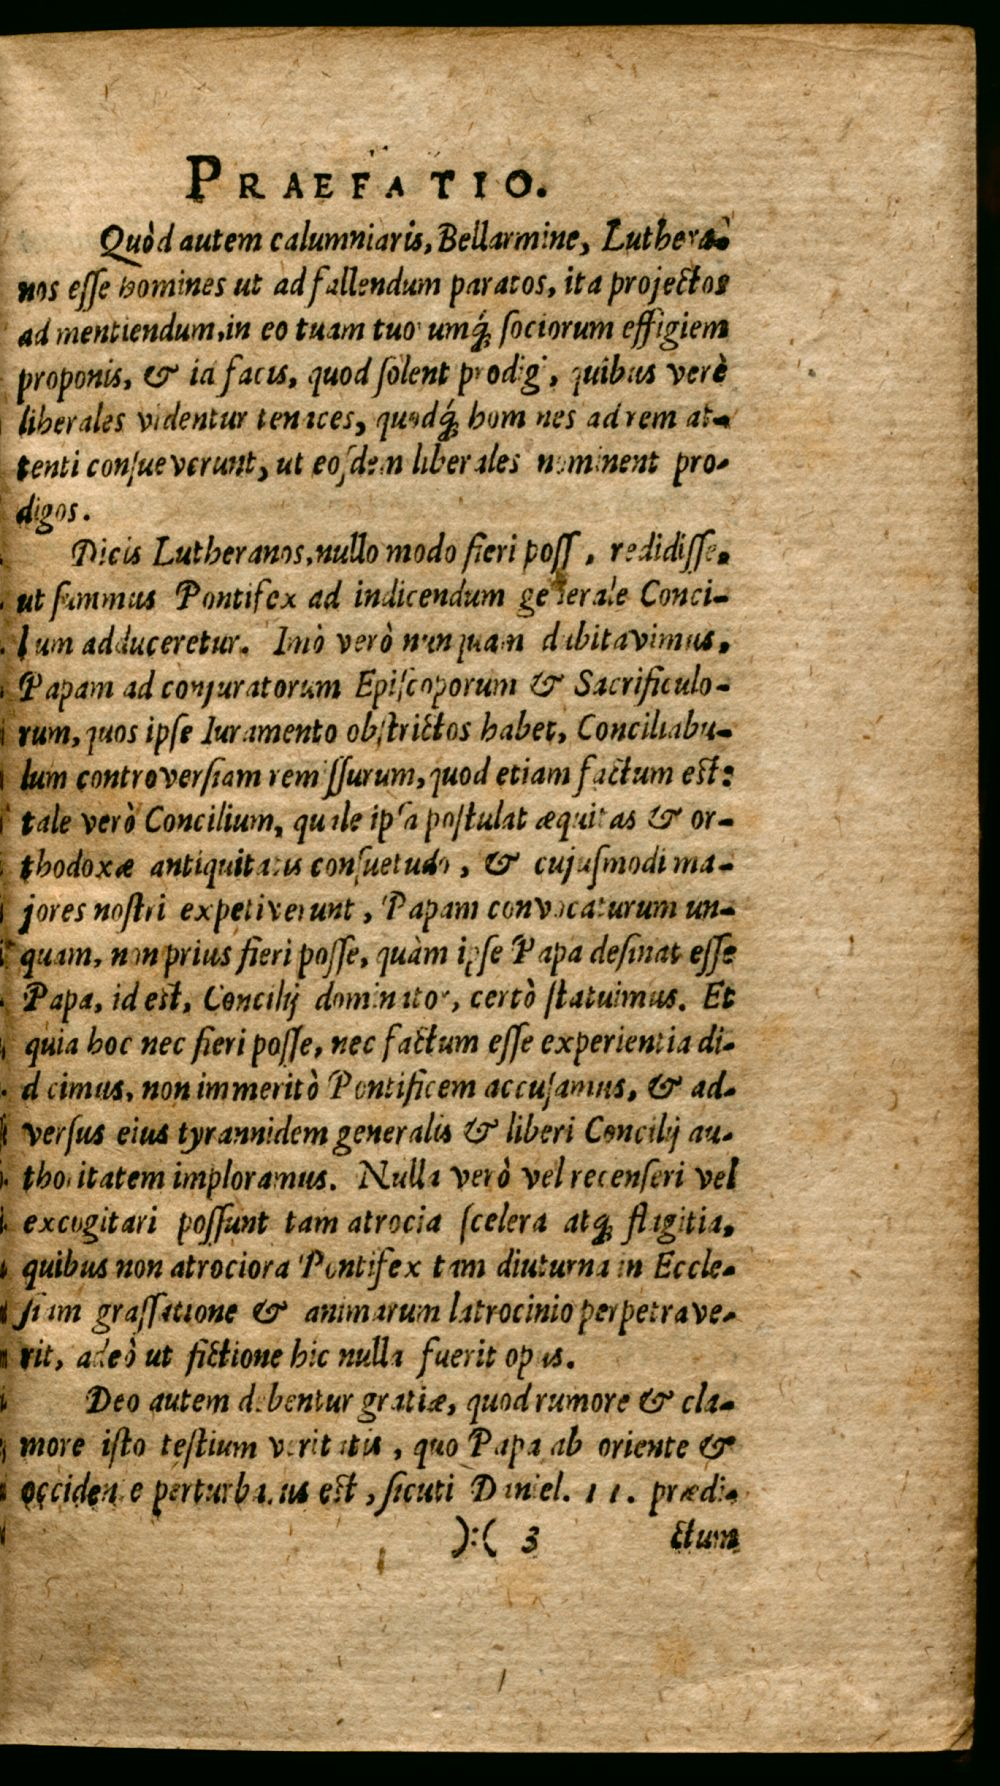 PRAEFATIO.
Quòd autem calumniaris, Bellarmine, Luthera-
nos eſſe homines ut ad fallendum paratos, ita projectos
ad mentiendum, in eo tuam tuorumq́; ſociorum effigiem
proponis, & id facis, quod ſolent prodigi, quibus verè
liberales videntur tenaces, quodq́; homines ad rem at-
tenti conſueverunt, ut eoſdem liberales nominent pro-
digos.
Dicis Lutheranos, nullo modo fieri poſſe, credidiſſe,
ut ſummus Pontifex ad indicendum generale Conci-
lium adduceretur. Imò verò nunquam dubitavimus,
Papam ad conjuratorum Epiſcoporum & Sacrificulo-
rum, quos ipſe Iuramento obſtrictos habet, Conciliabu-
lum controverſiam remiſſurum, quod etiam factum est:
tale verò Concilium, quale ipſa poſtulat æquitas & or-
thodoxæ antiquitatis conſuetudo, & cujuſmodi ma-
jores noſtri expetiverunt, Papam convocaturum un-
quam, non prius fieri poſſe, quàm ipſe Papa deſinat eſſe
Papa, id est, Concilij dominator, certò ſtatuimus. Et
quia hoc nec fieri poſſe, nec factum eſſe experientia di-
dicimus, non immeritò Pontificem accuſamus, & ad-
verſus eius tyrannidem generalis & liberi Concilij au-
thoritatem imploramus. Nulla verò vel recenſeri vel
excogitari poſſunt tam atrocia ſcelera atq; flagitia,
quibus non atrociora Pontifex tam diuturna in Eccle-
ſiam graſſatione & animarum latrocinio perpetrave-
rit, adeò ut fictione hic nulla fuerit opus.
Deo autem debentur gratiæ, quod rumore & cla-
more iſto teſtium veritatis, quo Papa ab oriente &
occidente perturbatus est, ſicuti Daniel. 11. prædi-
):( 3 ctum